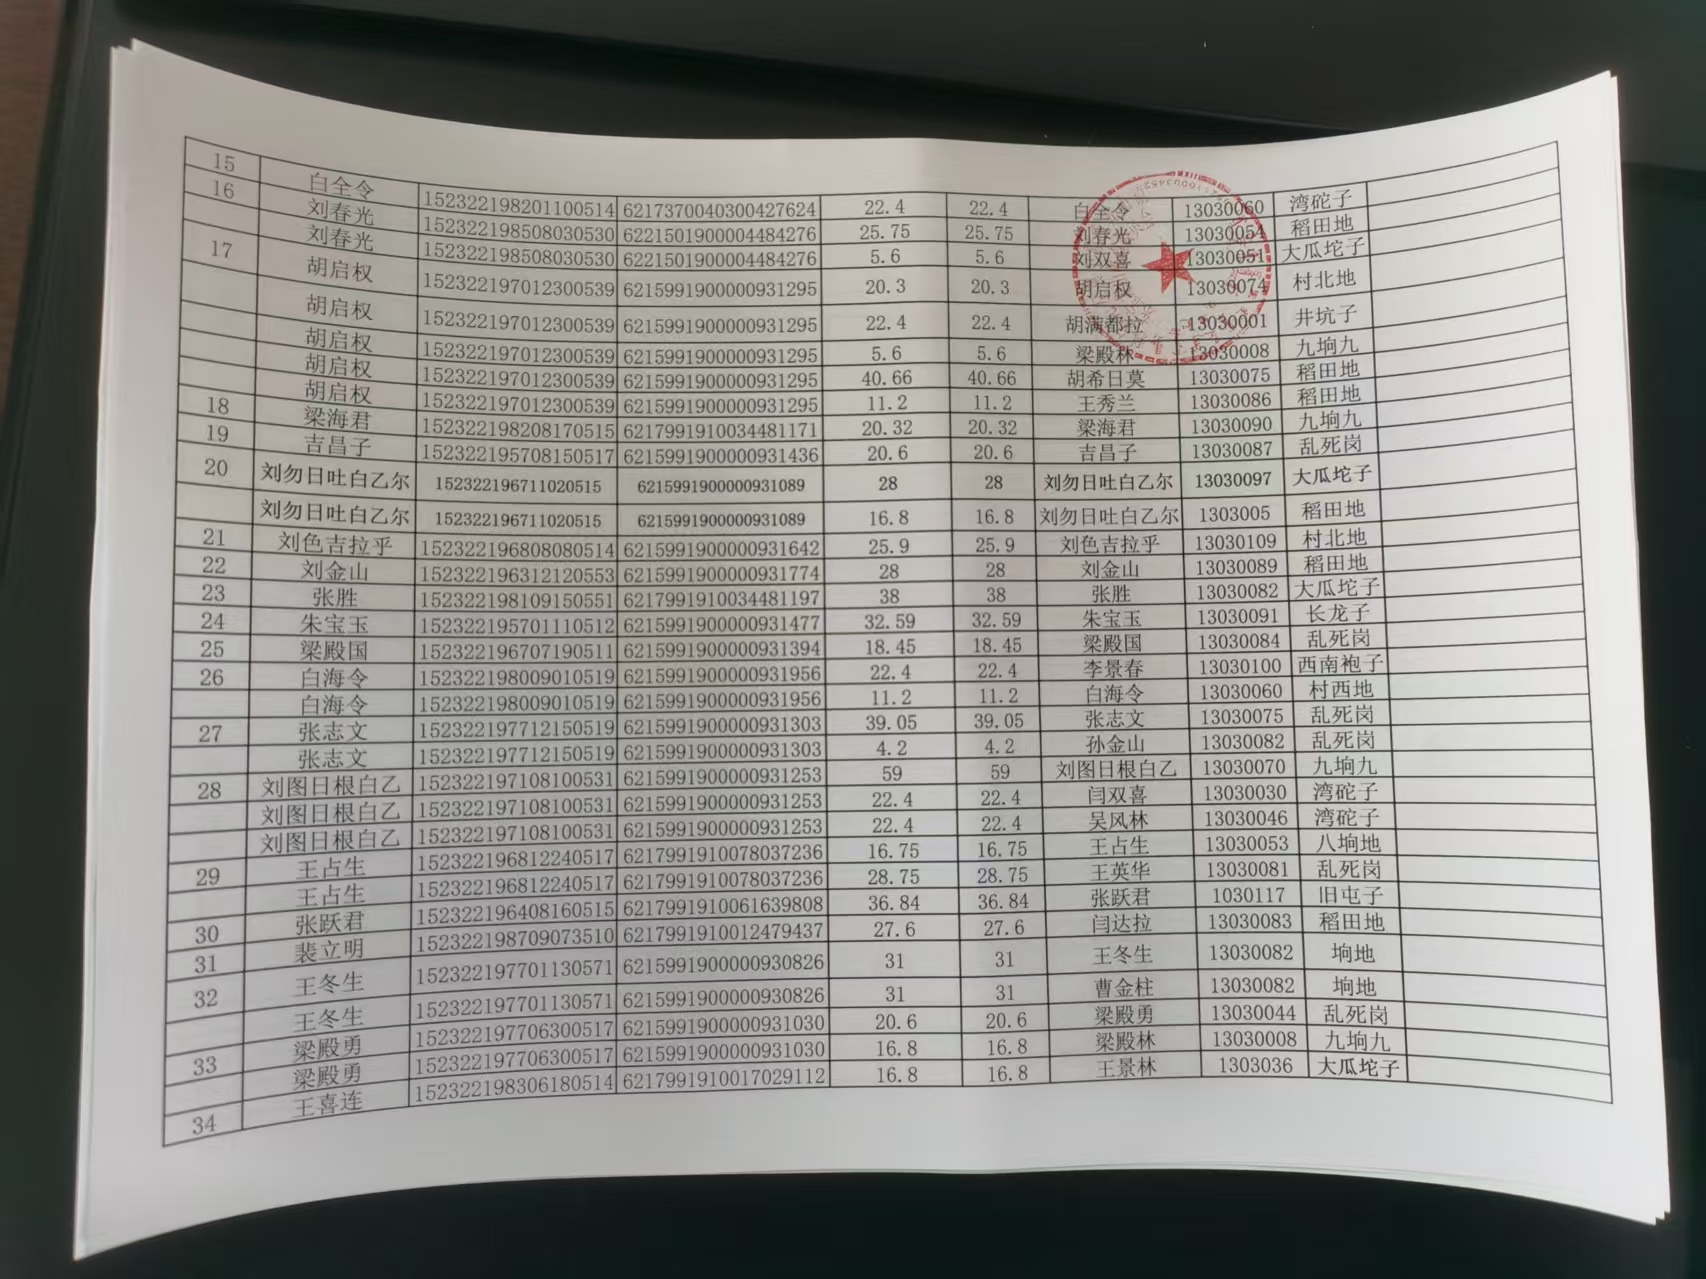 15 白全令 152322198201100514 6217370040300427624 22.4 22.4 白全令 13030060 湾砣子
16 刘春光 152322198508030530 6221501900004484276 25.75 25.75 刘春光 13030054 稻田地
刘春光 152322198508030530 6221501900004484276 5.6 5.6 刘双喜 13030051 大瓜坨子
17 胡启权 152322197012300539 6215991900000931295 20.3 20.3 胡启权 13030074 村北地
胡启权 152322197012300539 6215991900000931295 22.4 22.4 胡满都拉 13030001 井坑子
胡启权 152322197012300539 6215991900000931295 5.6 5.6 梁殿林 13030008 九垧九
胡启权 152322197012300539 6215991900000931295 40.66 40.66 胡希日莫 13030075 稻田地
胡启权 152322197012300539 6215991900000931295 11.2 11.2 王秀兰 13030086 稻田地
18 梁海君 152322198208170515 6217991910034481171 20.32 20.32 梁海君 13030090 九垧九
19 吉昌子 152322195708150517 6215991900000931436 20.6 20.6 吉昌子 13030087 乱死岗
20 刘勿日吐白乙尔 152322196711020515 6215991900000931089 28 28 刘勿日吐白乙尔 13030097 大瓜坨子
刘勿日吐白乙尔 152322196711020515 6215991900000931089 16.8 16.8 刘勿日吐白乙尔 1303005 稻田地
21 刘色吉拉乎 152322196808080514 6215991900000931642 25.9 25.9 刘色吉拉乎 13030109 村北地
22 刘金山 152322196312120553 6215991900000931774 28 28 刘金山 13030089 稻田地
23 张胜 152322198109150551 6217991910034481197 38 38 张胜 13030082 大瓜坨子
24 朱宝玉 152322195701110512 6215991900000931477 32.59 32.59 朱宝玉 13030091 长龙子
25 梁殿国 152322196707190511 6215991900000931394 18.45 18.45 梁殿国 13030084 乱死岗
26 白海令 152322198009010519 6215991900000931956 22.4 22.4 李景春 13030100 西南袍子
白海令 152322198009010519 6215991900000931956 11.2 11.2 白海令 13030060 村西地
27 张志文 152322197712150519 6215991900000931303 39.05 39.05 张志文 13030075 乱死岗
张志文 152322197712150519 6215991900000931303 4.2 4.2 孙金山 13030082 乱死岗
28 刘图日根白乙 152322197108100531 6215991900000931253 59 59 刘图日根白乙 13030070 九垧九
刘图日根白乙 152322197108100531 6215991900000931253 22.4 22.4 闫双喜 13030030 湾砣子
刘图日根白乙 152322197108100531 6215991900000931253 22.4 22.4 吴风林 13030046 湾砣子
29 王占生 152322196812240517 6217991910078037236 16.75 16.75 王占生 13030053 八垧地
王占生 152322196812240517 6217991910078037236 28.75 28.75 王英华 13030081 乱死岗
30 张跃君 152322196408160515 6217991910061639808 36.84 36.84 张跃君 1030117 旧屯子
31 裴立明 152322198709073510 6217991910012479437 27.6 27.6 闫达拉 13030083 稻田地
32 王冬生 152322197701130571 6215991900000930826 31 31 王冬生 13030082 垧地
王冬生 152322197701130571 6215991900000930826 31 31 曹金柱 13030082 垧地
33 梁殿勇 152322197706300517 6215991900000931030 20.6 20.6 梁殿勇 13030044 乱死岗
梁殿勇 152322197706300517 6215991900000931030 16.8 16.8 梁殿林 13030008 九垧九
34 王喜连 152322198306180514 6217991910017029112 16.8 16.8 王景林 1303036 大瓜坨子